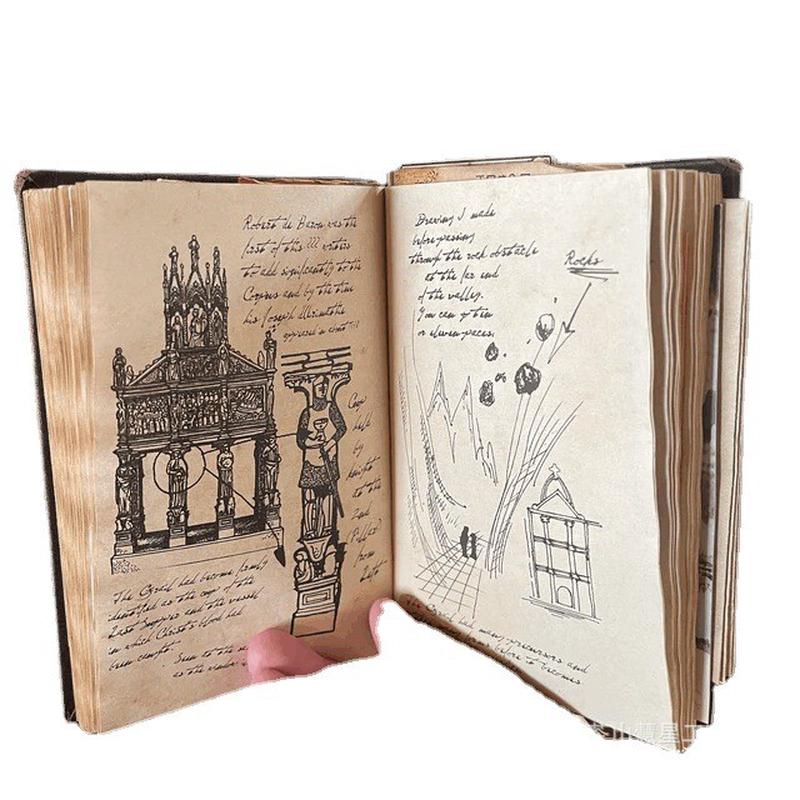 Robert de Boron was the
first of this ??? writers
to add significantly to the
Corpus and by the time
his Joseph
appeared in about
Cup
held
by
knight
at the
2nd
(Pillar)
from
Left
The Grail had become firmly
identified as the cup of the
Last Supper and the vessel
in which Christ's blood had
been caught.
Seen at the
as the
Drawing I made
before passing
through the rock obstacle
at the far end
of the valley.
You can go ten
or eleven paces.
Rocks
or
The Grail had many precursors and
forms before it becomes